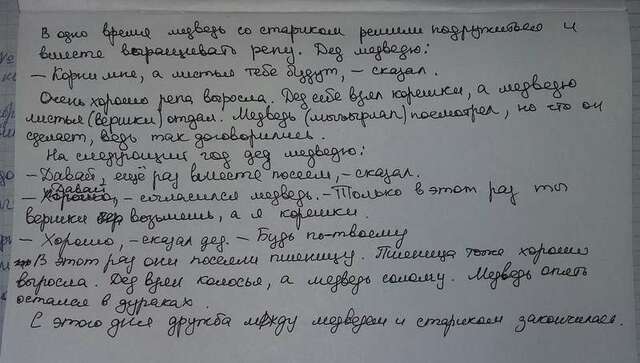 В одно время медведь со стариком решили подружиться и
вместе выращивать репу. Дед медведю:
— Корни мне, а листья тебе будут, — сказал.
Очень хорошо репа выросла. Дед себе взял корешки, а медведю
листья (вершки) отдал. Медведь посмотрел, но что он
сделает, ведь так договорились.
На следующий год дед медведю:
— Давай, ещё раз вместе посеем, — сказал.
— Давай, — согласился медведь. — Только в этот раз ты
вершки возьмёшь, а я корешки.
— Хорошо, — сказал дед. — Будь по-твоему
В этот раз они посеяли пшеницу. Пшеница тоже хорошо
выросла. Дед взял колосья, а медведь солому. Медведь опять
остался в дураках.
С этого дня дружба между медведем и стариком закончилась.